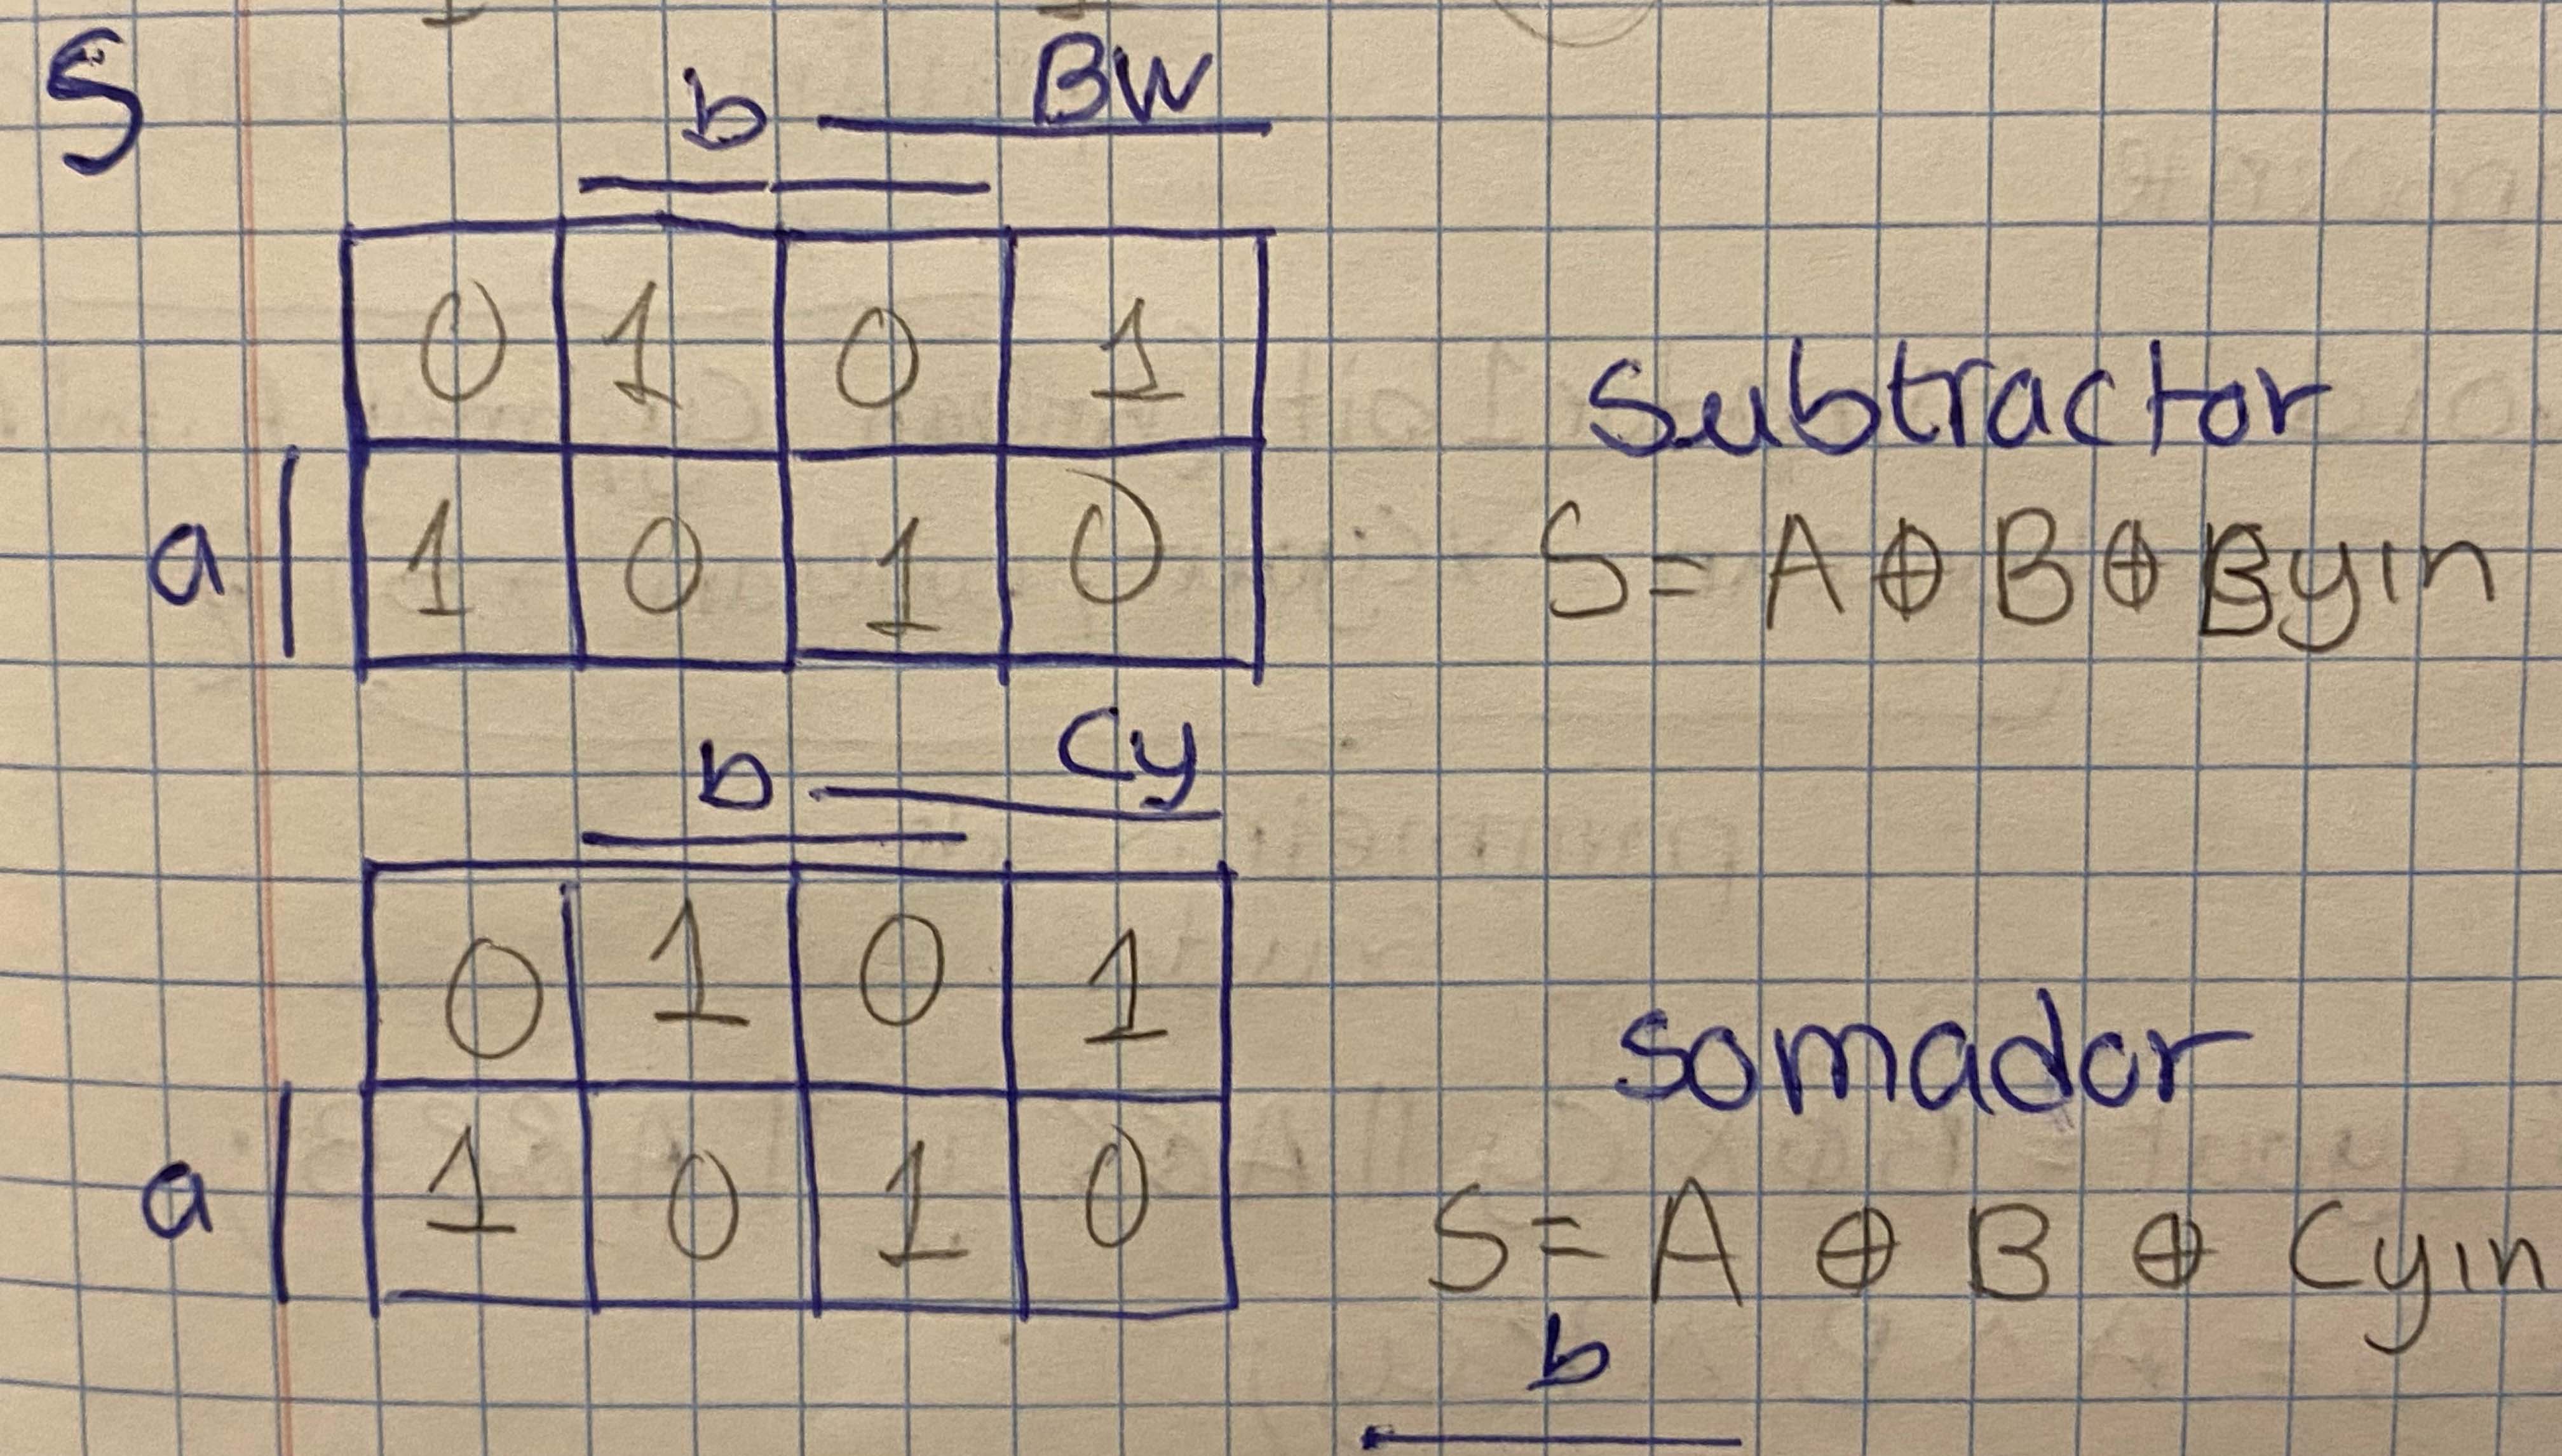 S
b BW
0 1 0 1
a 1 0 1 0
Subtractor
S = A ⊕ B ⊕ Byin
b Cy
0 1 0 1
a 1 0 1 0
somador
S = A ⊕ B ⊕ Cyin
b